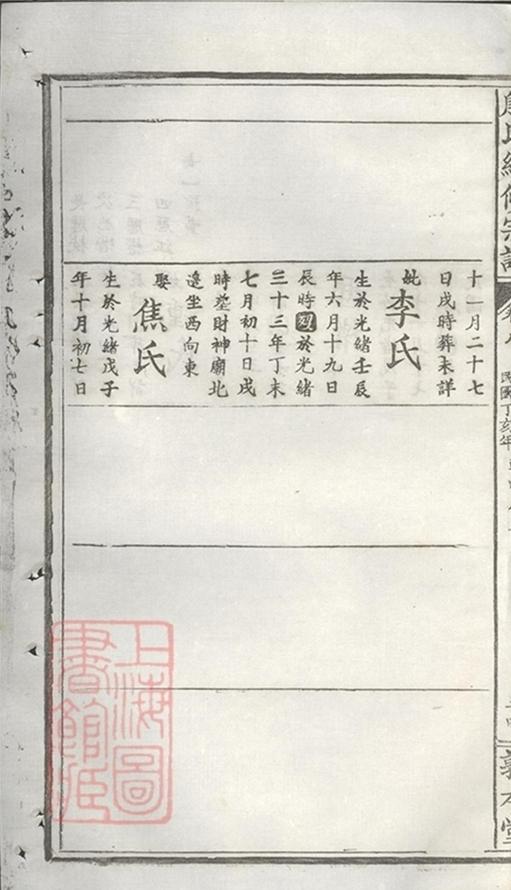 氏續修宗譜
卷八
民國丁亥年
敦本堂
十一月二十七
日戌時葬未詳
妣李氏
生於光緒壬辰
年六月十九日
辰時歿於光緒
三十三年丁未
七月初十日戌
時塟財神廟北
邉坐西向東
娶焦氏
生於光緒戊子
年十月初七日
上海圖
書館藏